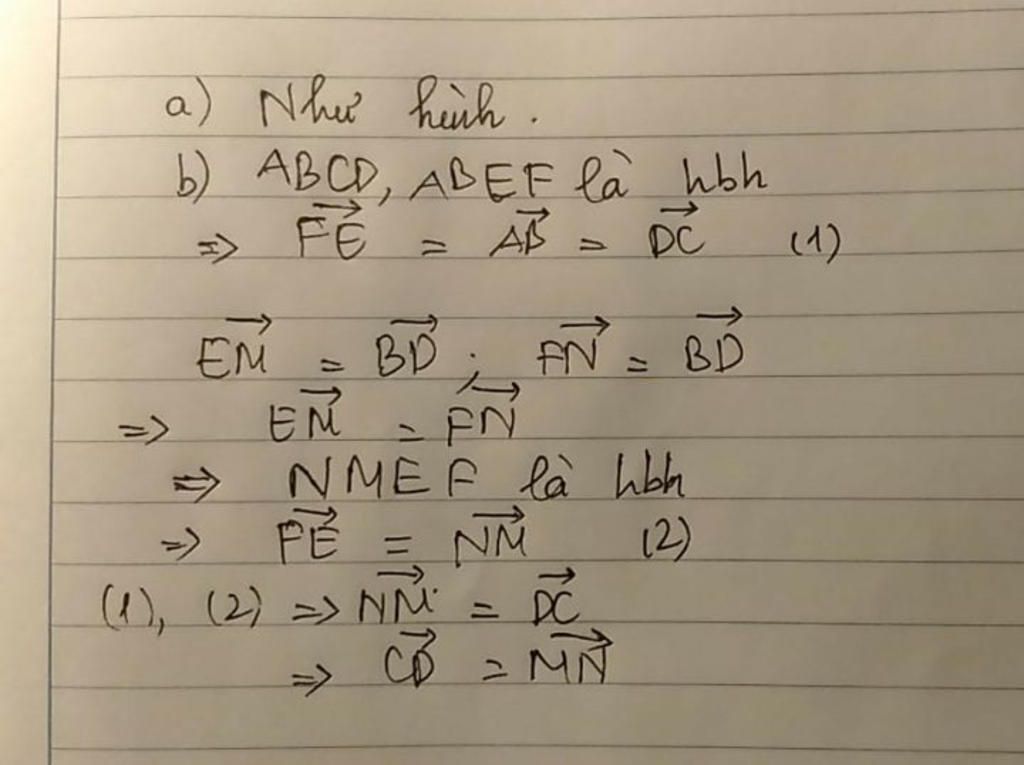 a) Như hình.
b) ABCD, ABEF là hbh
=> \overrightarrow{FE} = \overrightarrow{AB} = \overrightarrow{DC} (1)
\overrightarrow{EM} = \overrightarrow{BD}; \overrightarrow{FN} = \overrightarrow{BD}
=> \overrightarrow{EM} = \overrightarrow{FN}
=> NMEF là hbh
=> \overrightarrow{FE} = \overrightarrow{NM} (2)
(1), (2) => \overrightarrow{NM} = \overrightarrow{DC}
=> \overrightarrow{CD} = \overrightarrow{MN}